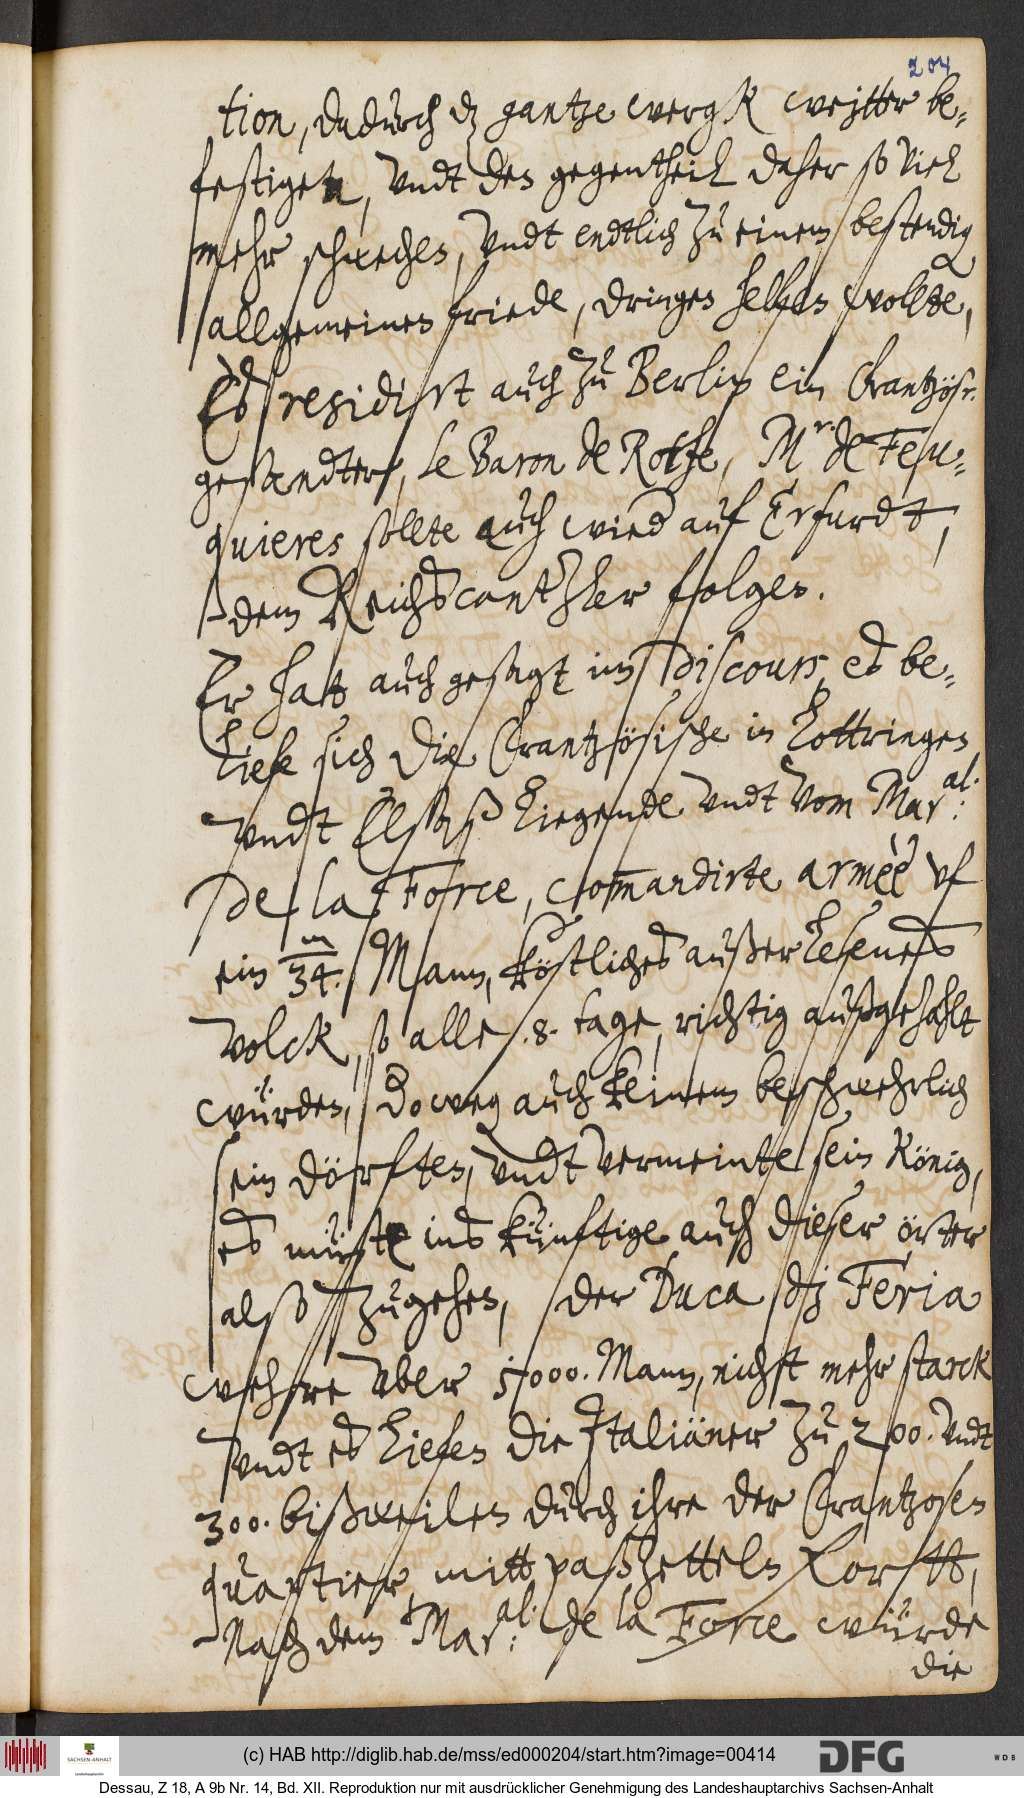 204
tion, dadurch dz gantze wergk weitter be-
festigen, vndt den gegentheil daher so viel
mehr schwechen, vndt endtlich zu einem bestendig
allgemeinen friede, dringen helfen wollte,
Es residirt auch zu Berlin ein frantzösr.
gesandter, le Baron de Rothe, Mr. de Feu-
quieres sollte auch wied auf Erfurdt,
dem Reichscantzler folgen.
Er hatt auch gesagt im discours, es be-
liefe sich die frantzösische in Lottringen
vndt Elsaß liegende vndt vom Maral:
de la Force, comandirte armèè vf
ein 34m. Mann, köstliches außerlesenes
volck, so alle .8. tage, richtig außgezahlt
würden, do weg auch keinem beschwehrlich
sein dörften, vndt vermeinte sein König,
es müste ins künftige auch dieser örtter
also zugehen, der Duca di Feria
wehre vber 5000. Mann, nicht mehr starck
vndt es liefen die Italiäner zu 200. vndt
300. bißweilen durch ihre der frantzosen
quartier, mitt paßzetteln fortt,
Nach dem Maral: de la Force würde
die
(c) HAB http://diglib.hab.de/mss/ed000204/start.htm?image=00414
SACHSEN-ANHALT
DFG
WDB
Dessau, Z 18, A 9b Nr. 14, Bd. XII. Reproduktion nur mit ausdrücklicher Genehmigung des Landeshauptarchivs Sachsen-Anhalt